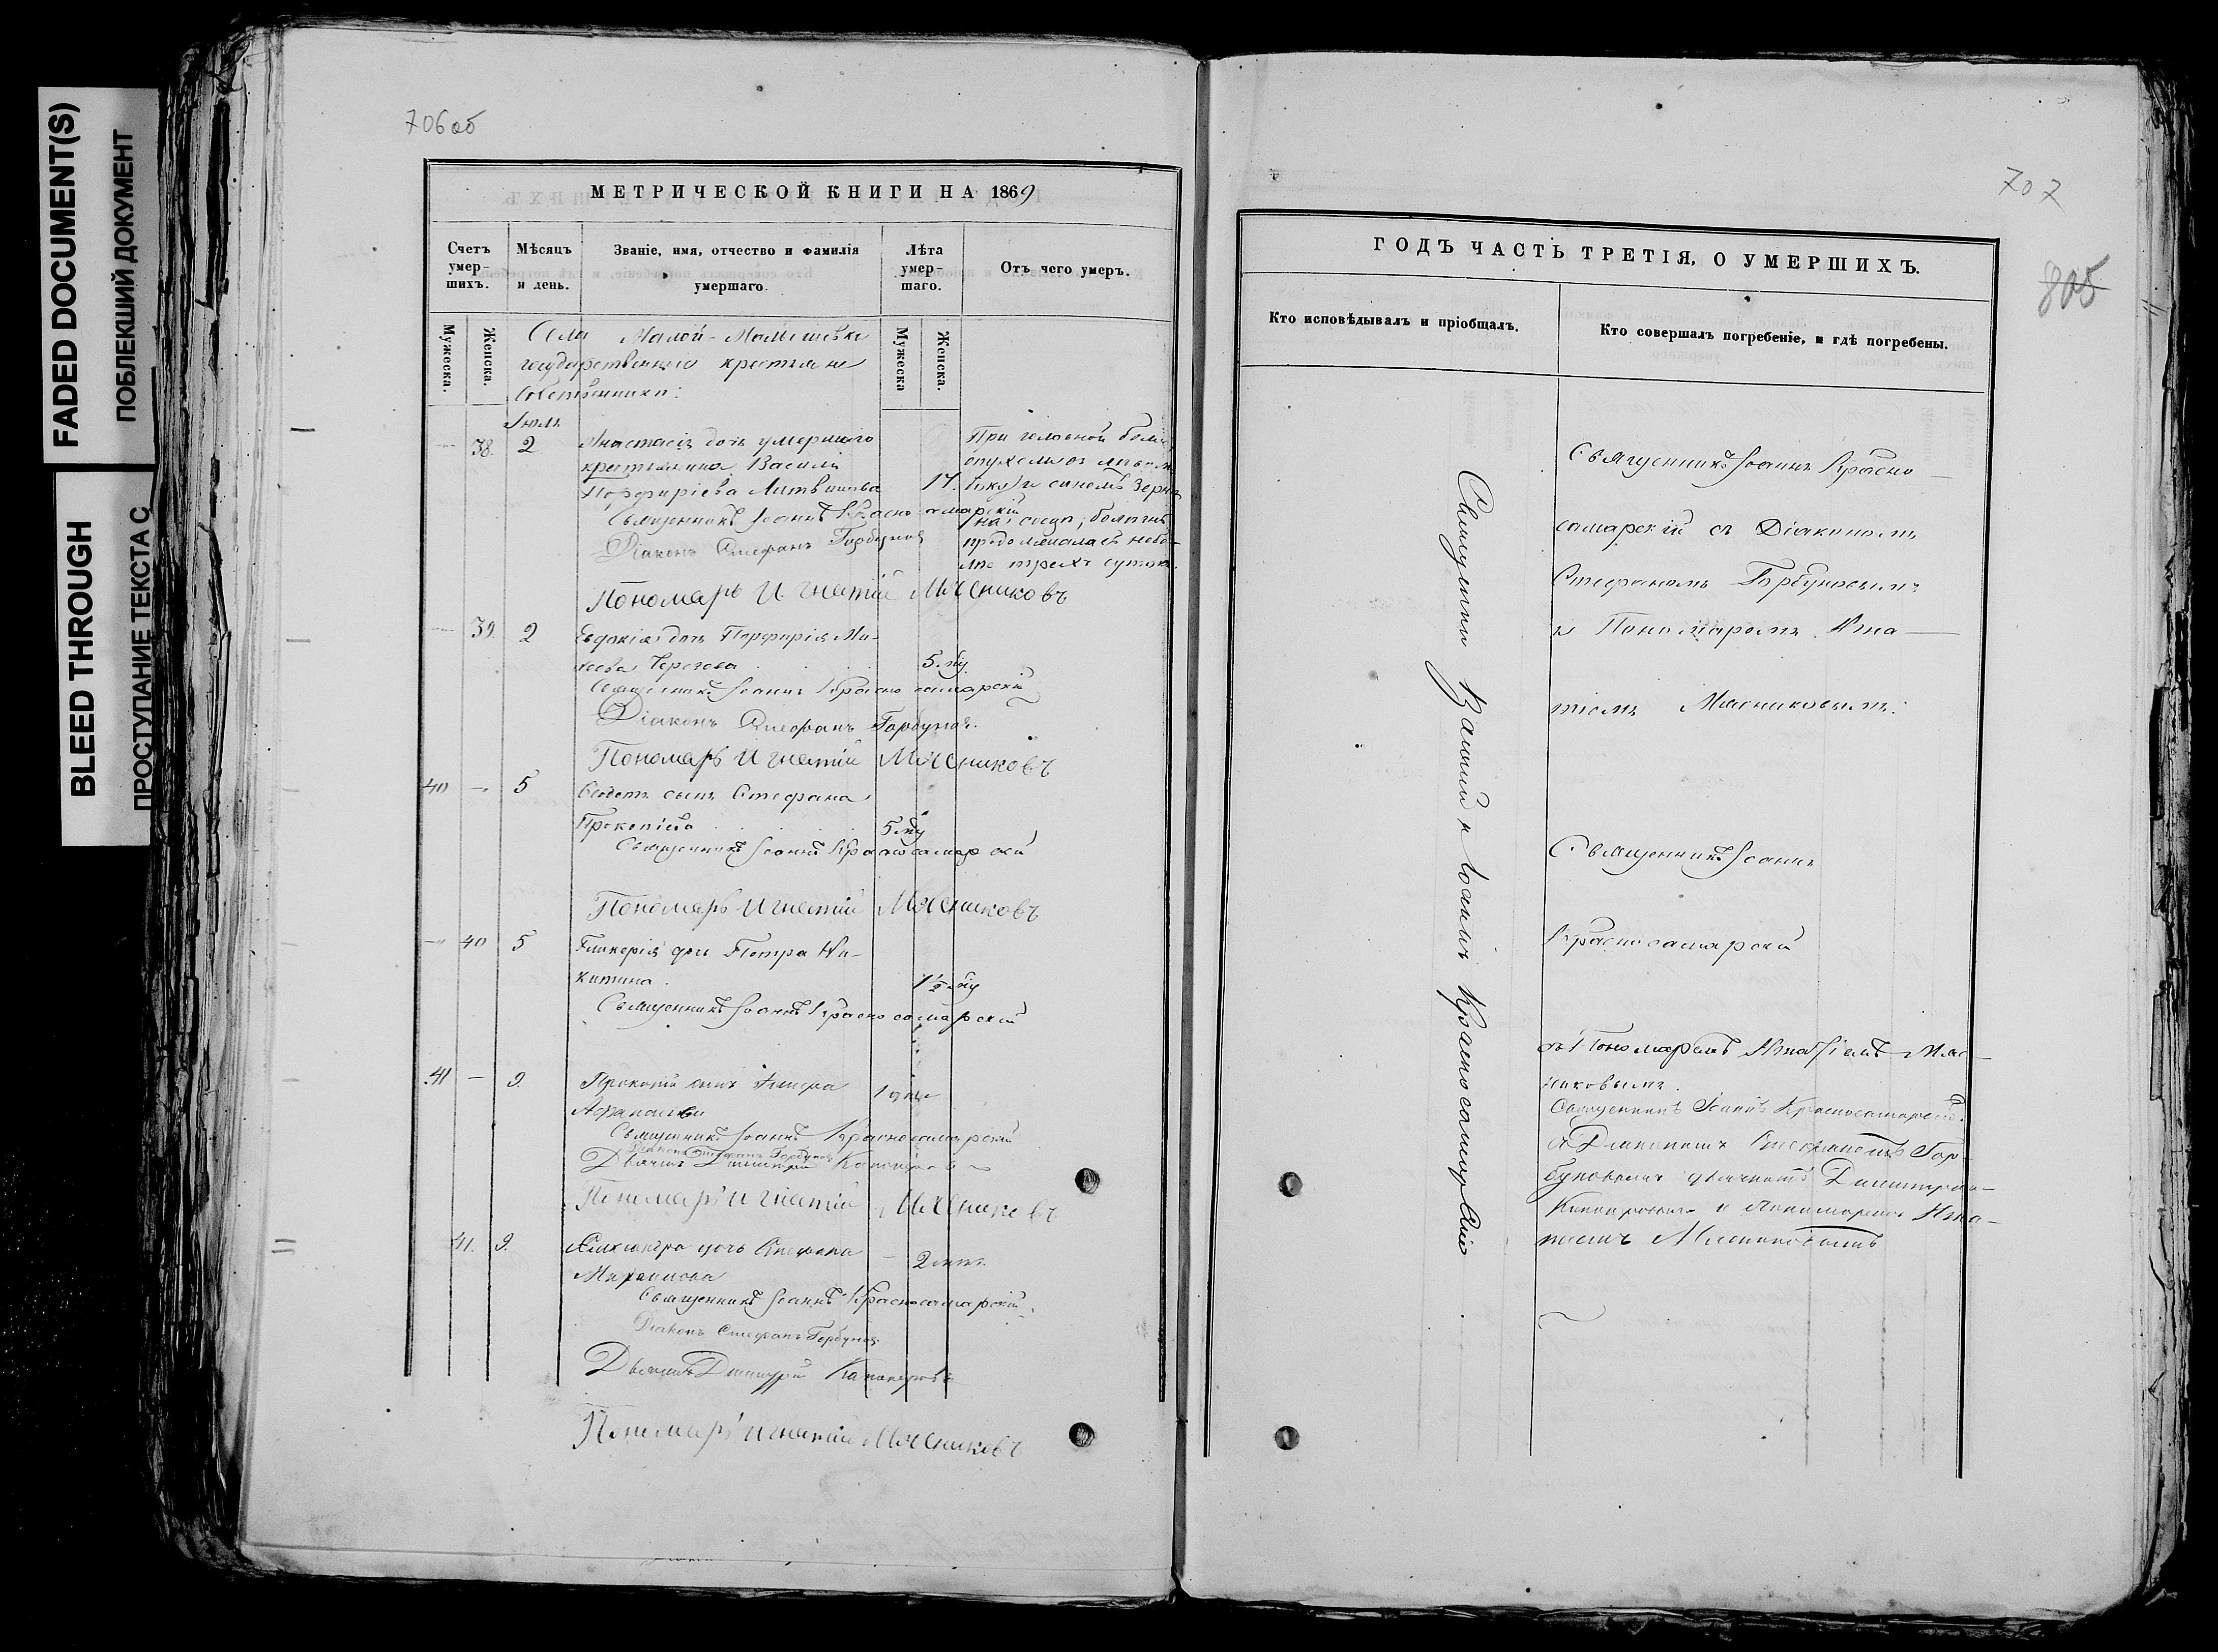 FADED DOCUMENT(S)
ПОБЛЕКШИЙ ДОКУМЕНТ
BLEED THROUGH
ПРОСТУПАНИЕ ТЕКСТА С
706об
МЕТРИЧЕСКОЙ КНИГИ НА 1869
Счетъ умер-шихъ.
Мѣсяцъ и день.
Званіе, имя, отчество и фамилія умершаго.
Лѣта умер-шаго.
Отъ чего умеръ.
Мужеска.
Женска.
Мужеска
Женска.
Села Малой-Малышевки
государственные крестьяне
собственники:
Іюль
38. 2 Анастасія дочь умершаго
крестьянина Василія
Порфиріева Литвинова 17.
При головной боли
опухоль въ лѣвом
боку и
болѣзнь
продолжалась небо-
лѣе трехъ сутокъ.
Священникъ Іоаннъ Красносамарскій
Діаконъ Стефанъ Горбуновъ
Пономарь Игнатій Мясниковъ
39. 2 Евдокія дочь Порфирія Ма-
кеева 5. мѣ
Священникъ Іоаннъ Красносамарскій
Діаконъ Стефанъ Горбуновъ.
Пономарь Игнатій Мясниковъ
40 — 5 сынъ Стефана
Прокопіева 5 мѣ
Священникъ Іоаннъ Красносамарскій
Пономарь Игнатій Мясниковъ
— 40 5 Гликерія дочь Петра Ни-
китина. 1½ мѣ
Священникъ Іоаннъ Красносамарскій
41 — 9. Прокопій сынъ
Афанасьева
Священникъ Іоаннъ Красносамарскій
Діаконъ Стефанъ Горбуновъ
Дьячекъ Димитрій
Пономарь Игнатій Мясниковъ
41. 9. Александра дочь Стефана — 2
Священникъ Іоаннъ Красносамарскій
Діаконъ Стефанъ Горбуновъ
Дьячекъ Димитрій
Пономарь Игнатій Мясниковъ
707
805
ГОДЪ ЧАСТЬ ТРЕТІЯ, О УМЕРШИХЪ.
Кто исповѣдывалъ и пріобщалъ.
Кто совершалъ погребеніе, и гдѣ погребены.
Священникъ Іоаннъ Красносамарскій
Священникъ Іоаннъ Красно
самарскій съ Діакономъ
Стефаномъ Горбуновымъ
и Пономаромъ Игна
тіемъ Мясниковымъ.
Священникъ Іоаннъ
Красносамарскій
съ Пономаремъ Игнатіемъ Мяс-
никовымъ.
Священникъ Іоаннъ Красносамарскій
съ Діакономъ Стефаномъ Гор
буновымъ дьячкомъ Димитріем
и Пономаремъ Игна-
тіемъ Мясниковымъ